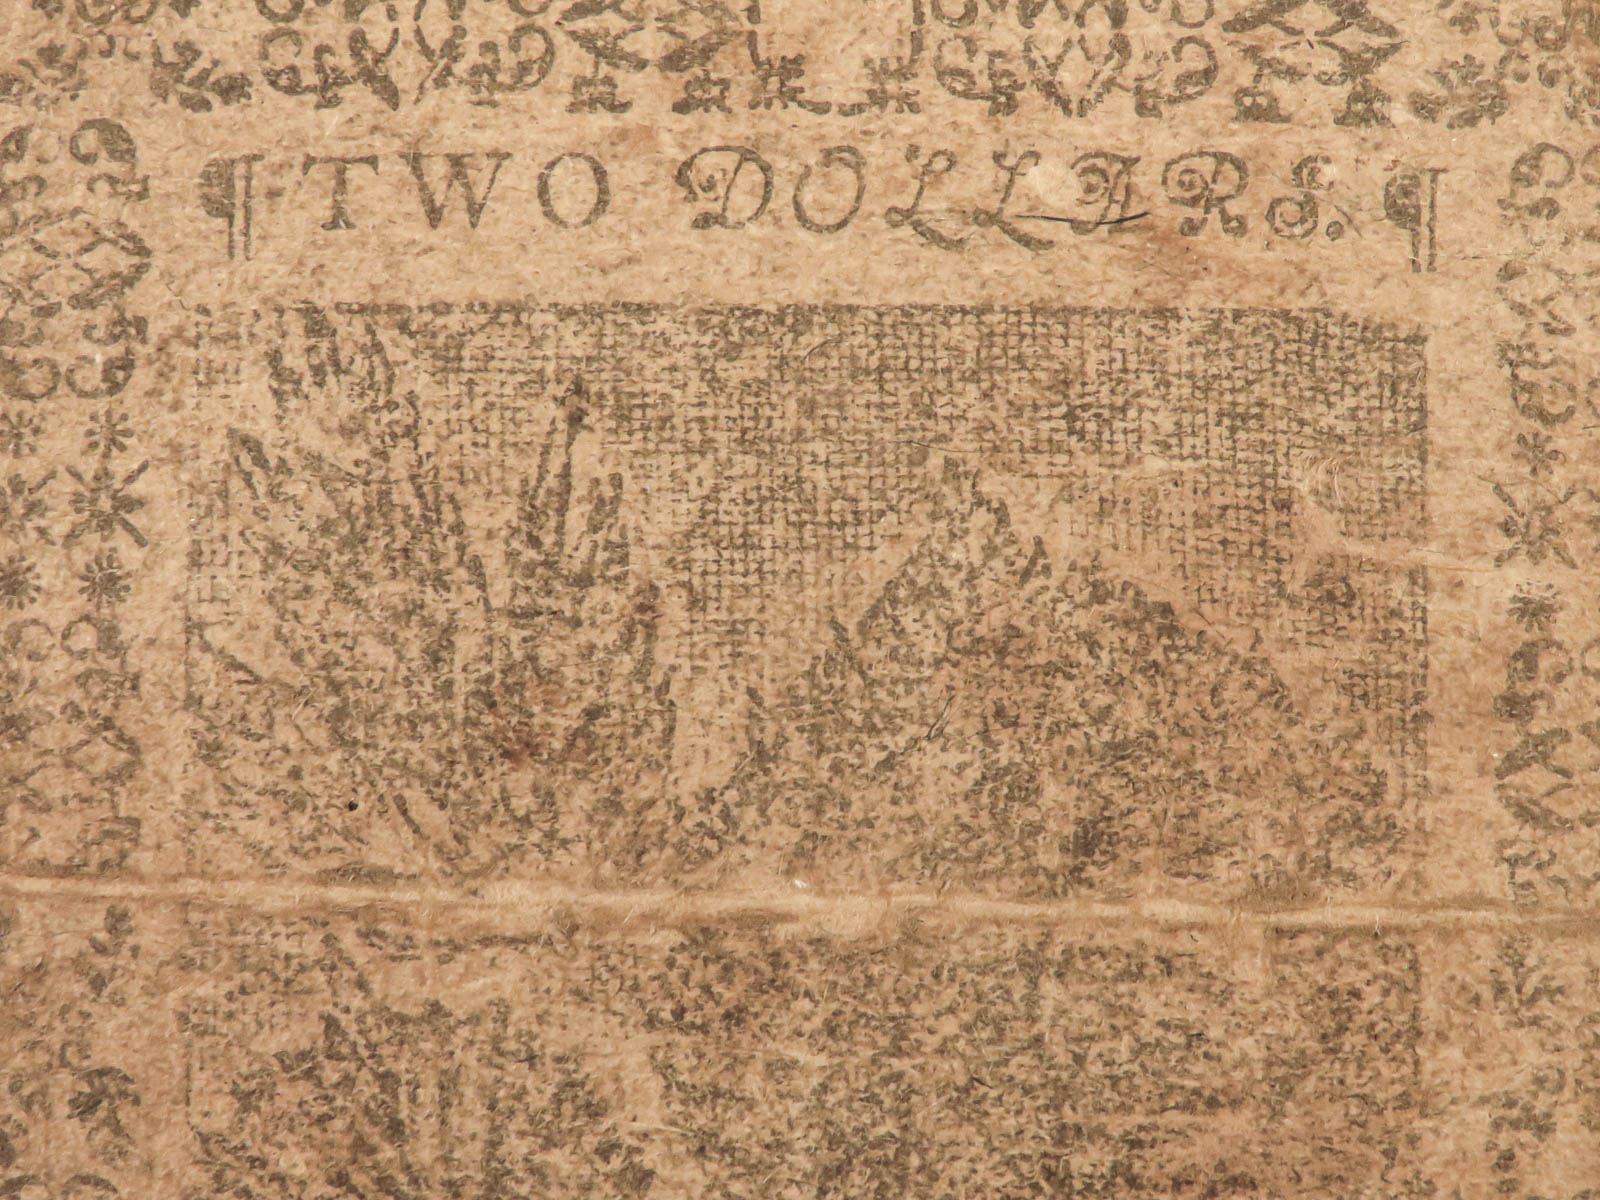 ¶TWO DOLLARS.¶